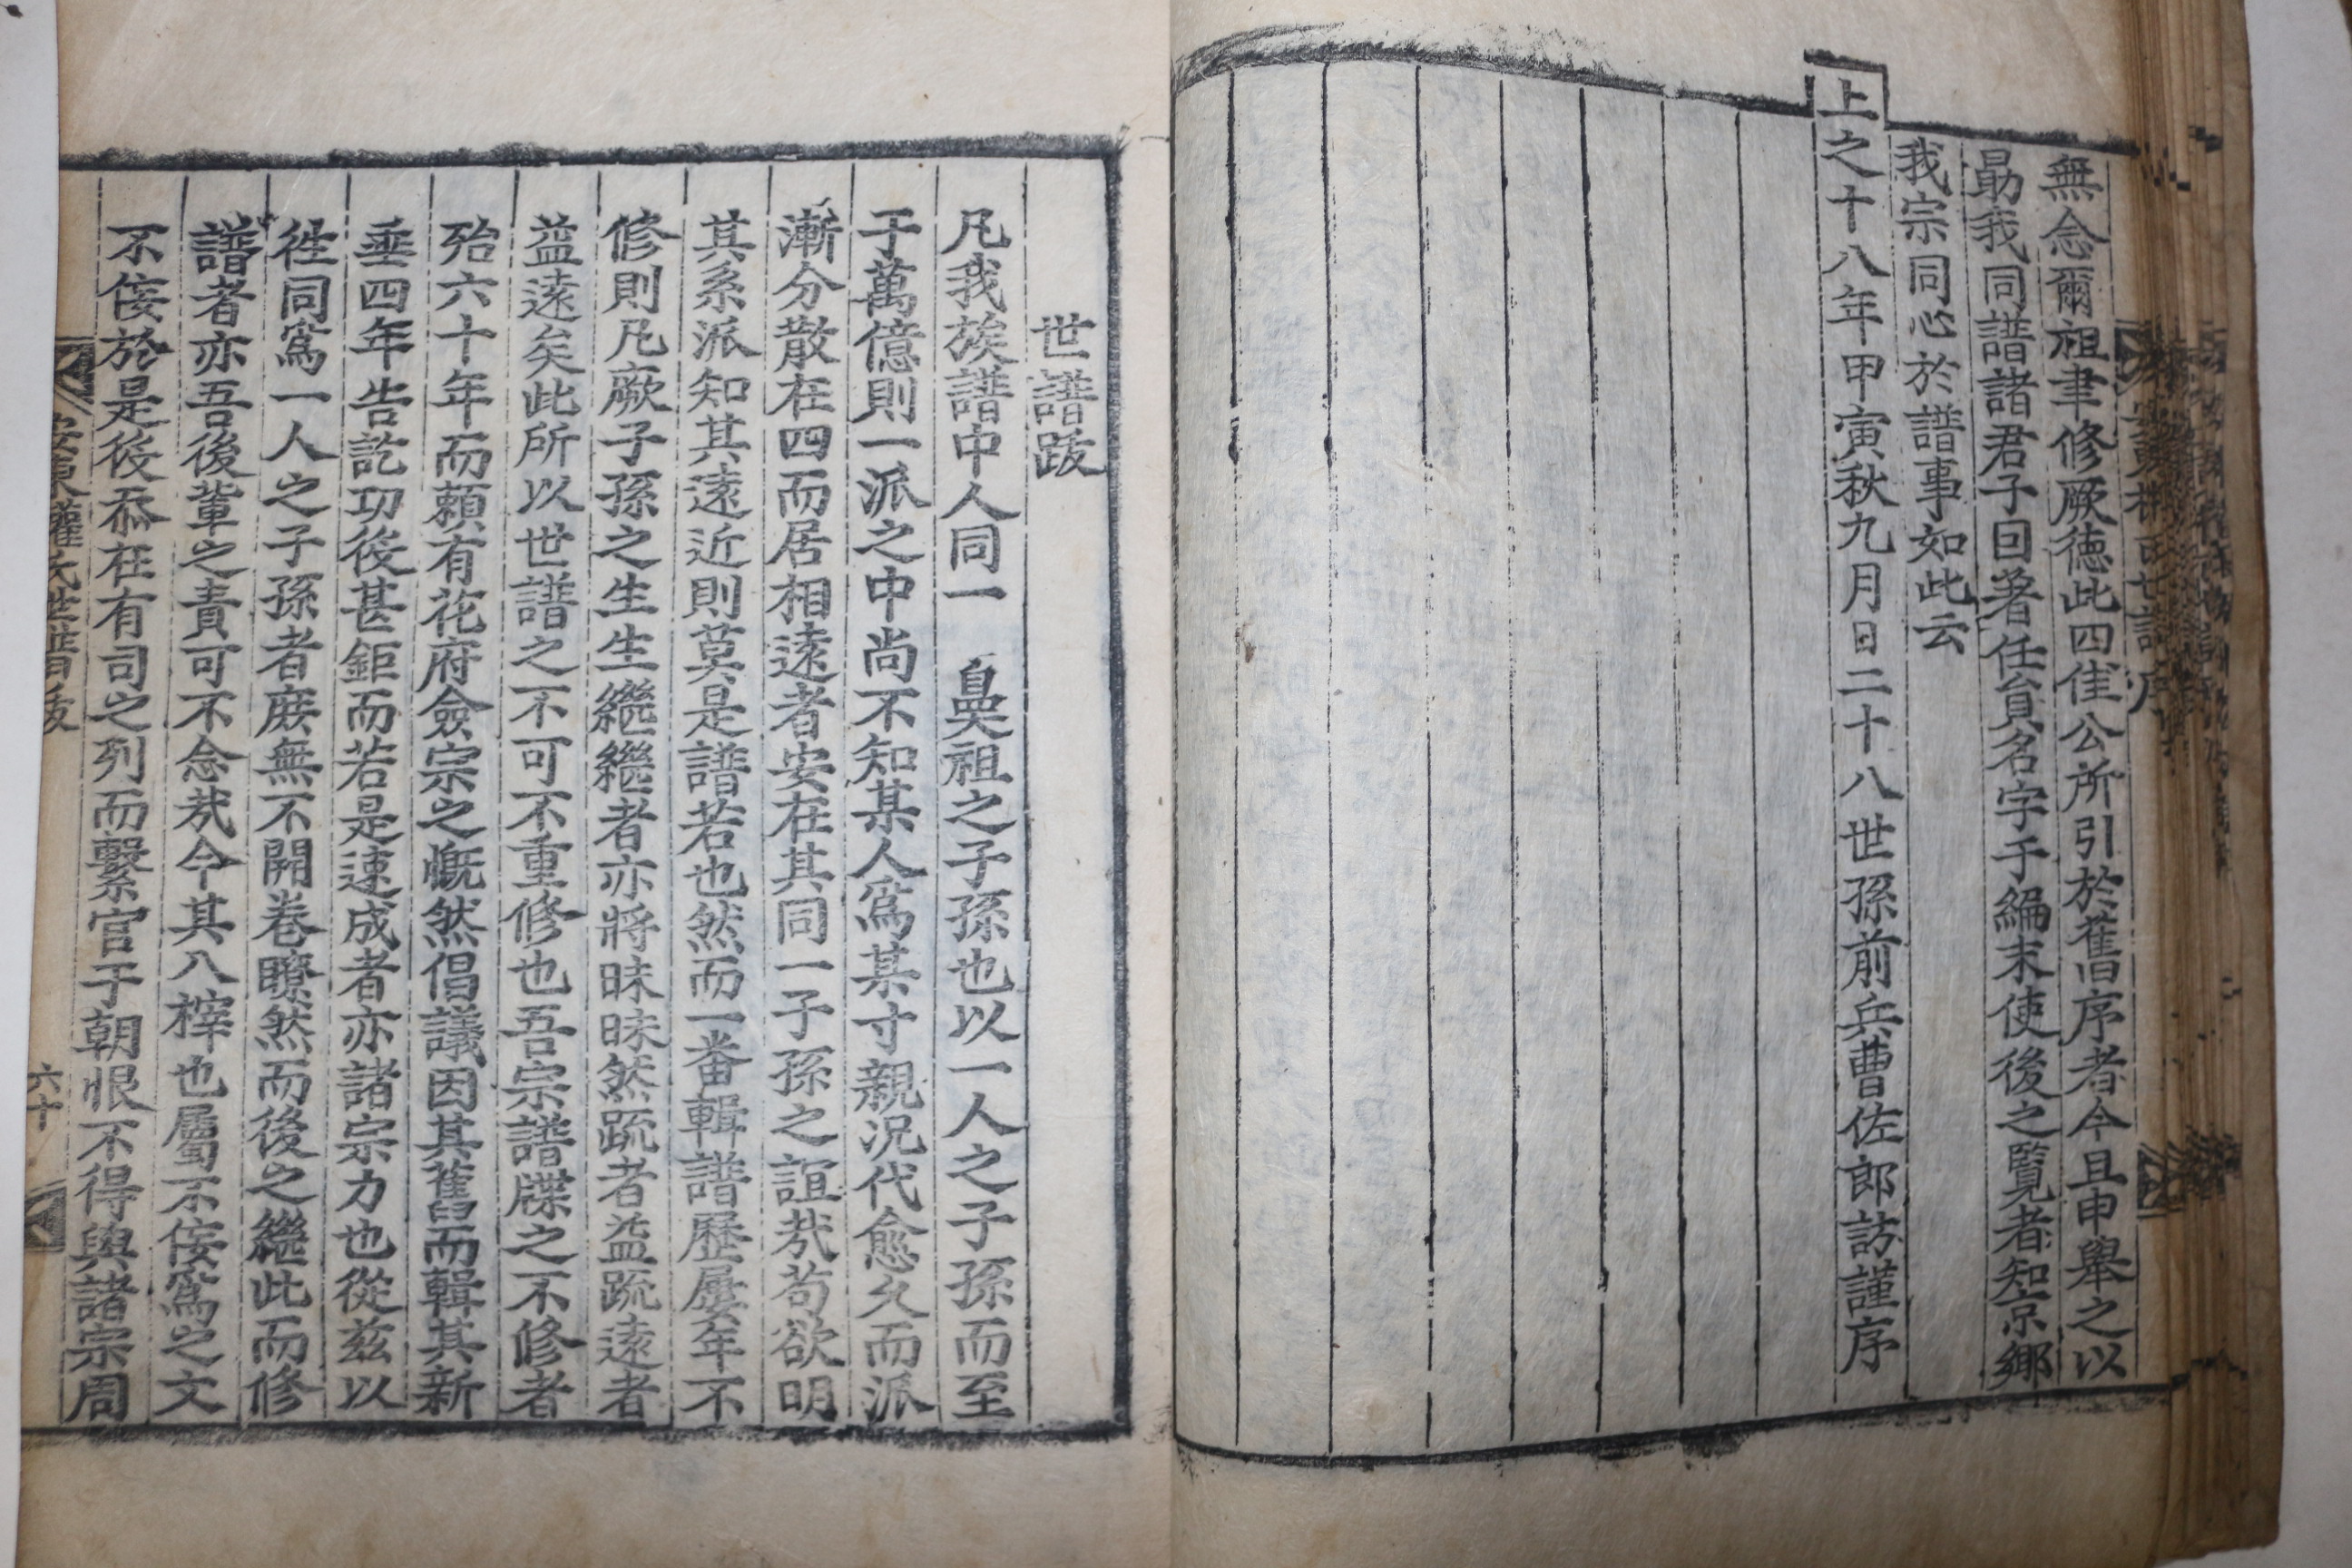 無念爾祖聿修厥德此四隹公所引於舊序者今且申舉之以
勗我同譜諸君子回著任員名字于編末使後之覧者知京鄉
我宗同心於譜事如此云
上之十八年甲寅秋九月日二十八世孫前兵曹佐郎訪謹序
世譜跋
凡我族譜中人同一 鼻祖之子孫也以一人之子孫而至
于萬億則一派之中尚不知某人爲某寸親況代愈久而派
漸分散在四而居相遠者安在其同一子孫之誼㢤苟欲明
其系派知其遠近則莫是譜若也然而一番輯譜歷屢年不
修則凡厥子孫之生生繼繼者亦將昧昧然䟽者益䟽遠者
益遠矣此所以世譜之不可不重修也吾宗譜牒之不修者
殆六十年而賴有花府僉宗之慨然倡議因其舊而輯其新
垂四年告訖功役甚鉅而若是速成者亦諸宗力也從玆以
徃同爲一人之子孫者庶無不開巻瞭然而後之繼此而修
譜者亦吾後輩之責可不念㢤今其八梓也屬不佞爲之文
不佞於是役忝在有司之列而繫官于朝恨不得與諸宗周
安東權氏世譜跋
六十